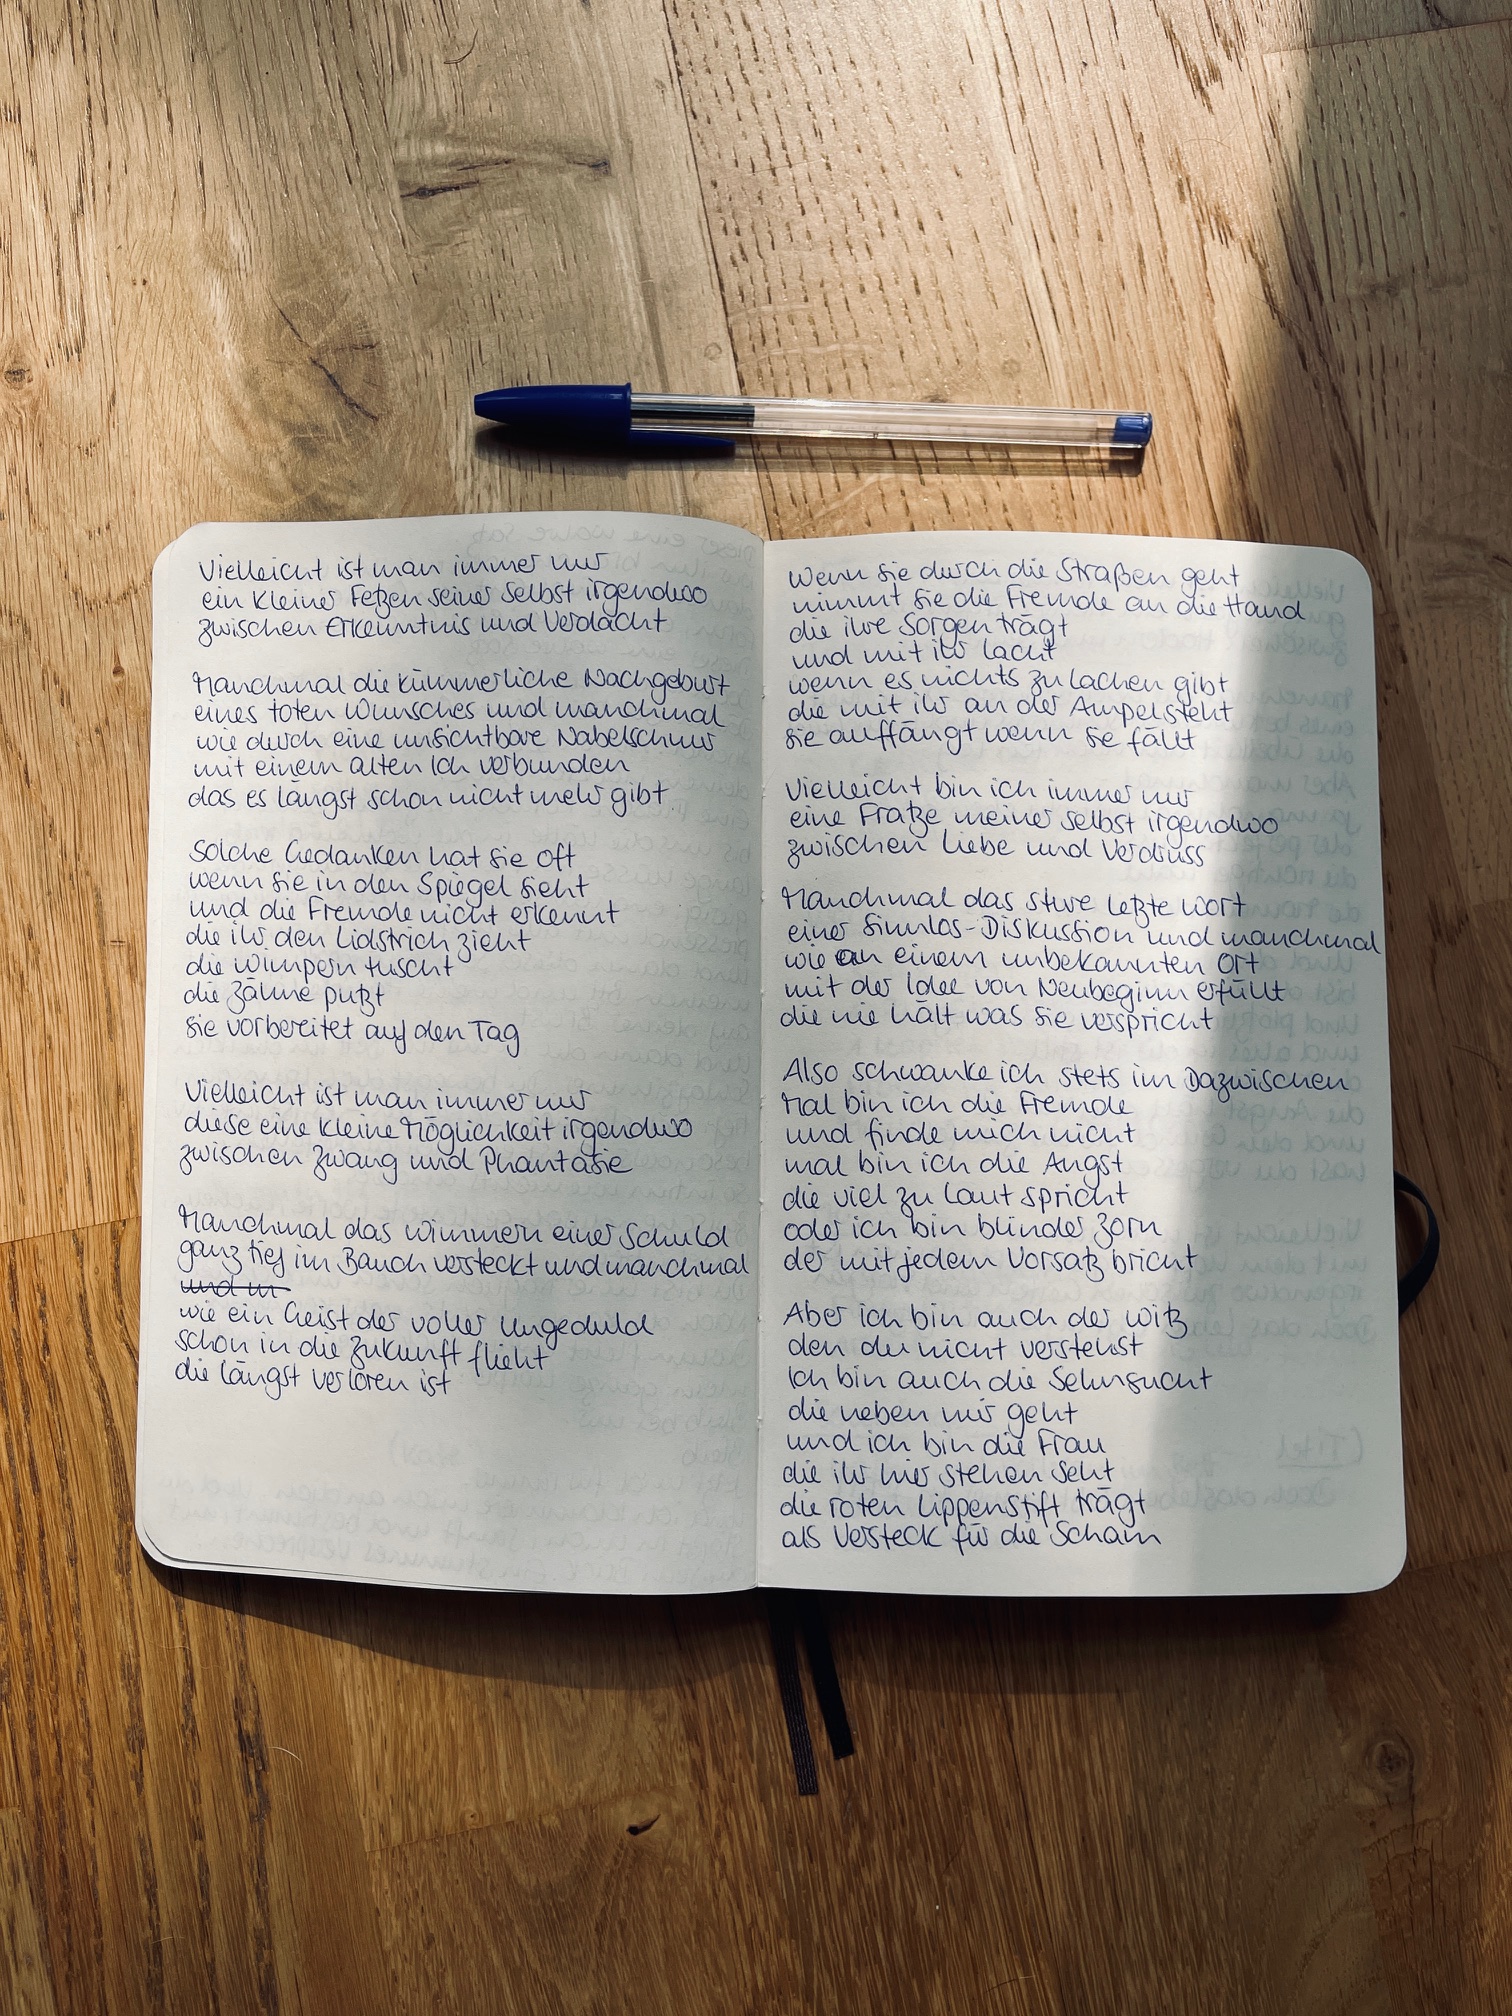 Vielleicht ist man immer nur
ein kleiner Fetzen seiner selbst irgendwo
zwischen Erkenntnis und Verdacht
Manchmal die kümmerliche Nachgeburt
eines toten Wunsches und manchmal
wie durch eine unsichtbare Nabelschnur
mit einem alten Ich verbunden
das es längst schon nicht mehr gibt
Solche Gedanken hat sie oft
wenn sie in den Spiegel sieht
und die Fremde nicht erkennt
die ihr den Lidstrich zieht
die Wimpern tuscht
die Zähne putzt
sie vorbereitet auf den Tag
Vielleicht ist man immer nur
diese eine kleine Möglichkeit irgendwo
zwischen Zwang und Phantasie
Manchmal das Wimmern einer Schuld
ganz tief im Bauch versteckt und manchmal
und m
wie ein Geist der voller Ungeduld
schon in die Zukunft flieht
die längst verloren ist
Wenn sie durch die Straßen geht
nimmt sie die Fremde an die Hand
die ihre Sorgen trägt
und mit ihr lacht
wenn es nichts zu lachen gibt
die mit ihr an der Ampel steht
sie auffängt wenn sie fällt
Vielleicht bin ich immer nur
eine Fratze meiner selbst irgendwo
zwischen Liebe und Verdruss
Manchmal das sture letzte Wort
einer Sinnlos-Diskussion und manchmal
wie an einem unbekannten Ort
mit der Idee von Neubeginn erfüllt
die nie hält was sie verspricht
Also schwanke ich stets im Dazwischen
Mal bin ich die Fremde
und finde mich nicht
mal bin ich die Angst
die viel zu laut spricht
oder ich bin blinder Zorn
der mit jedem Vorsatz bricht
Aber ich bin auch der Witz
den du nicht verstehst
Ich bin auch die Sehnsucht
die neben mir geht
und ich bin die Frau
die ihr hier stehen seht
die roten Lippenstift trägt
als Versteck für die Scham